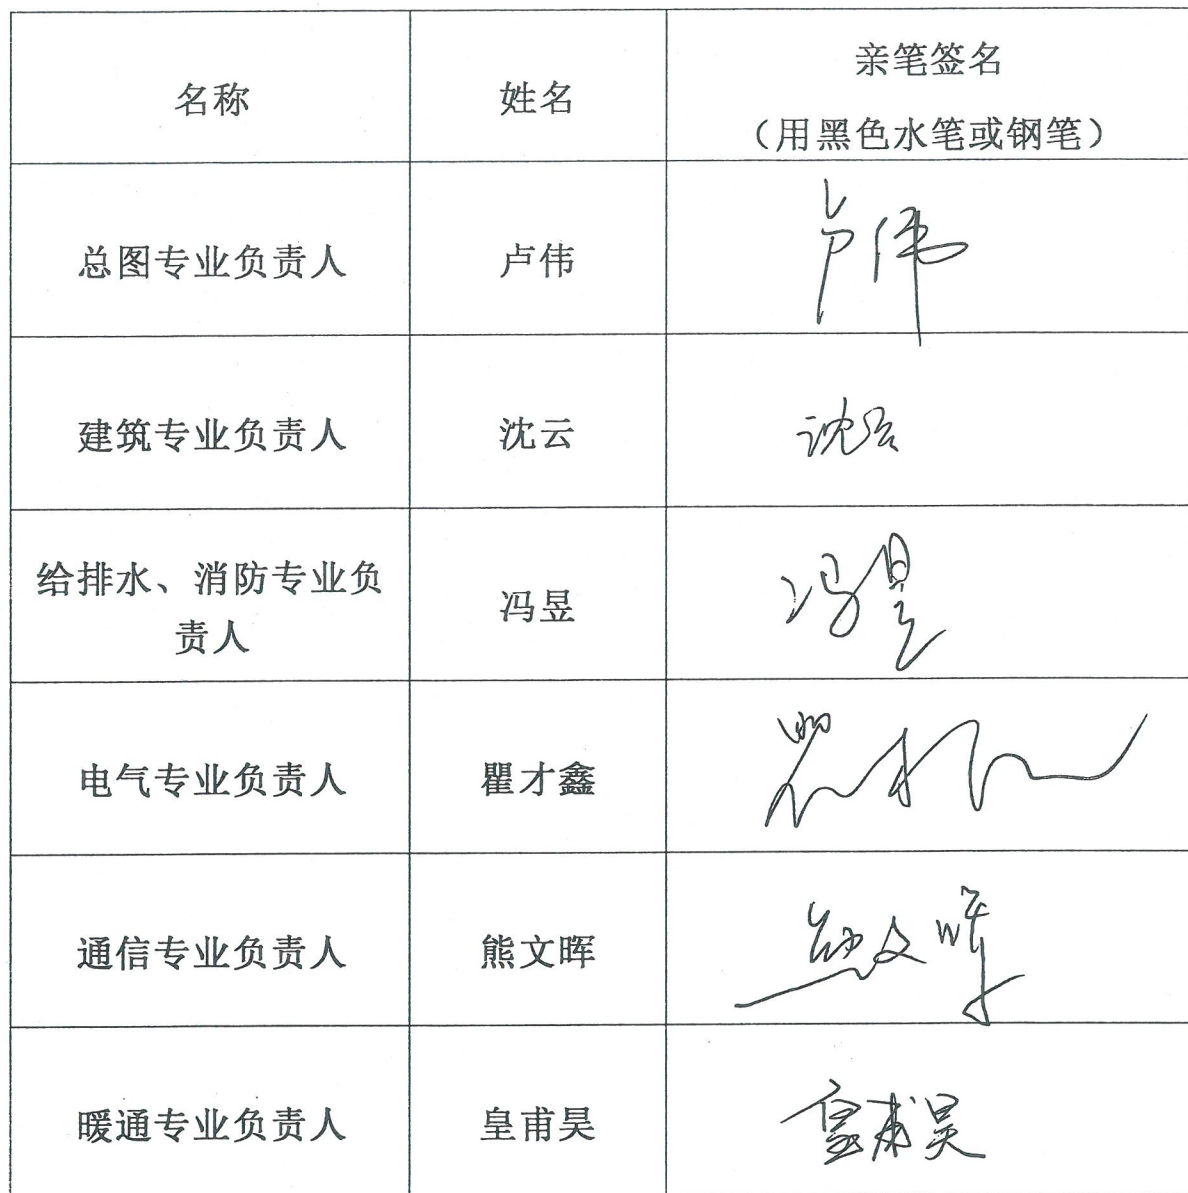 名称
姓名
亲笔签名
（用黑色水笔或钢笔）
总图专业负责人
卢伟
卢伟
建筑专业负责人
沈云
沈云
给排水、消防专业负
责人
冯昱
冯昱
电气专业负责人
瞿才鑫
通信专业负责人
熊文晖
熊文晖
暖通专业负责人
皇甫昊
皇甫昊